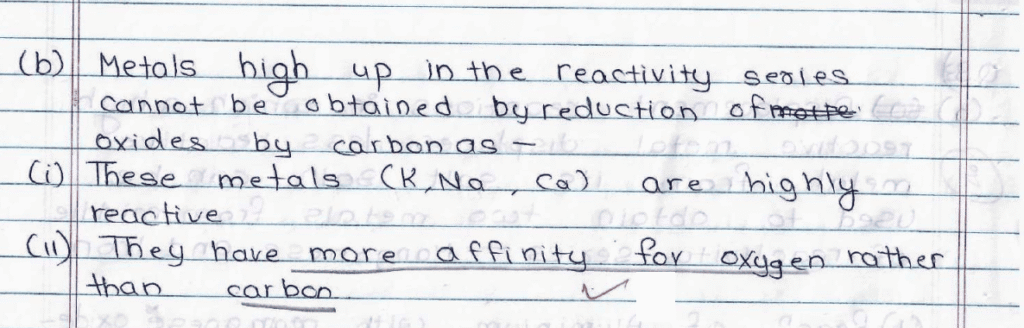 (b) Metals high up in the reactivity series
cannot be obtained by reduction of
oxides by carbon as –
(i) These metals (K, Na, Ca) are highly
reactive
(ii) They have more affinity for oxygen rather
than carbon.